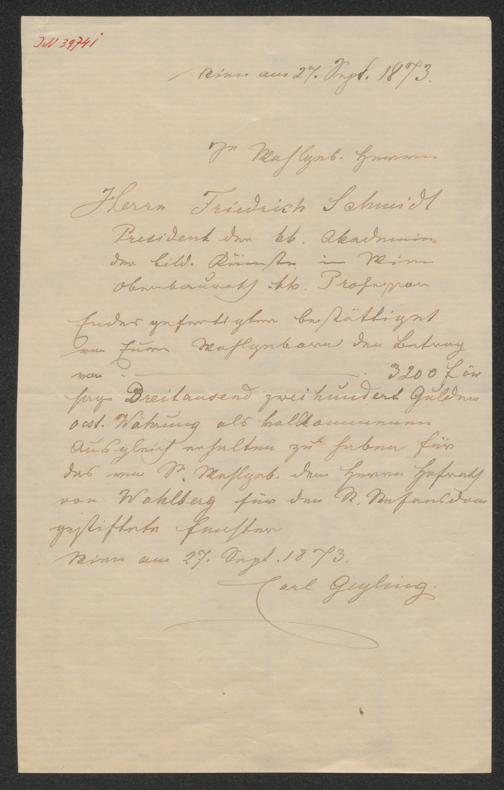 IN 39741
Wien am 27. Sept. 1873.
Sr Wohlgeb. Herrn
Herrn Friedrich Schmidt
President der kk. Akademie
der bild. Künste in Wien
Oberbaurath kk. Professor
Endesgefertigter bestättiget
von Euer Wohlgeboren den Betrag
von 3200 f öw
sage Dreitausend zweihundert Gulden
oest. Währung als vollkommenen
Ausgleich erhalten zu haben für
das von Sr. Wohlgeb. dem Herrn Hofrath
von Wohlberg für den St. Stefansdom
gestiftete Fenster
Wien am 27. Sept. 1873.
Carl Geyling